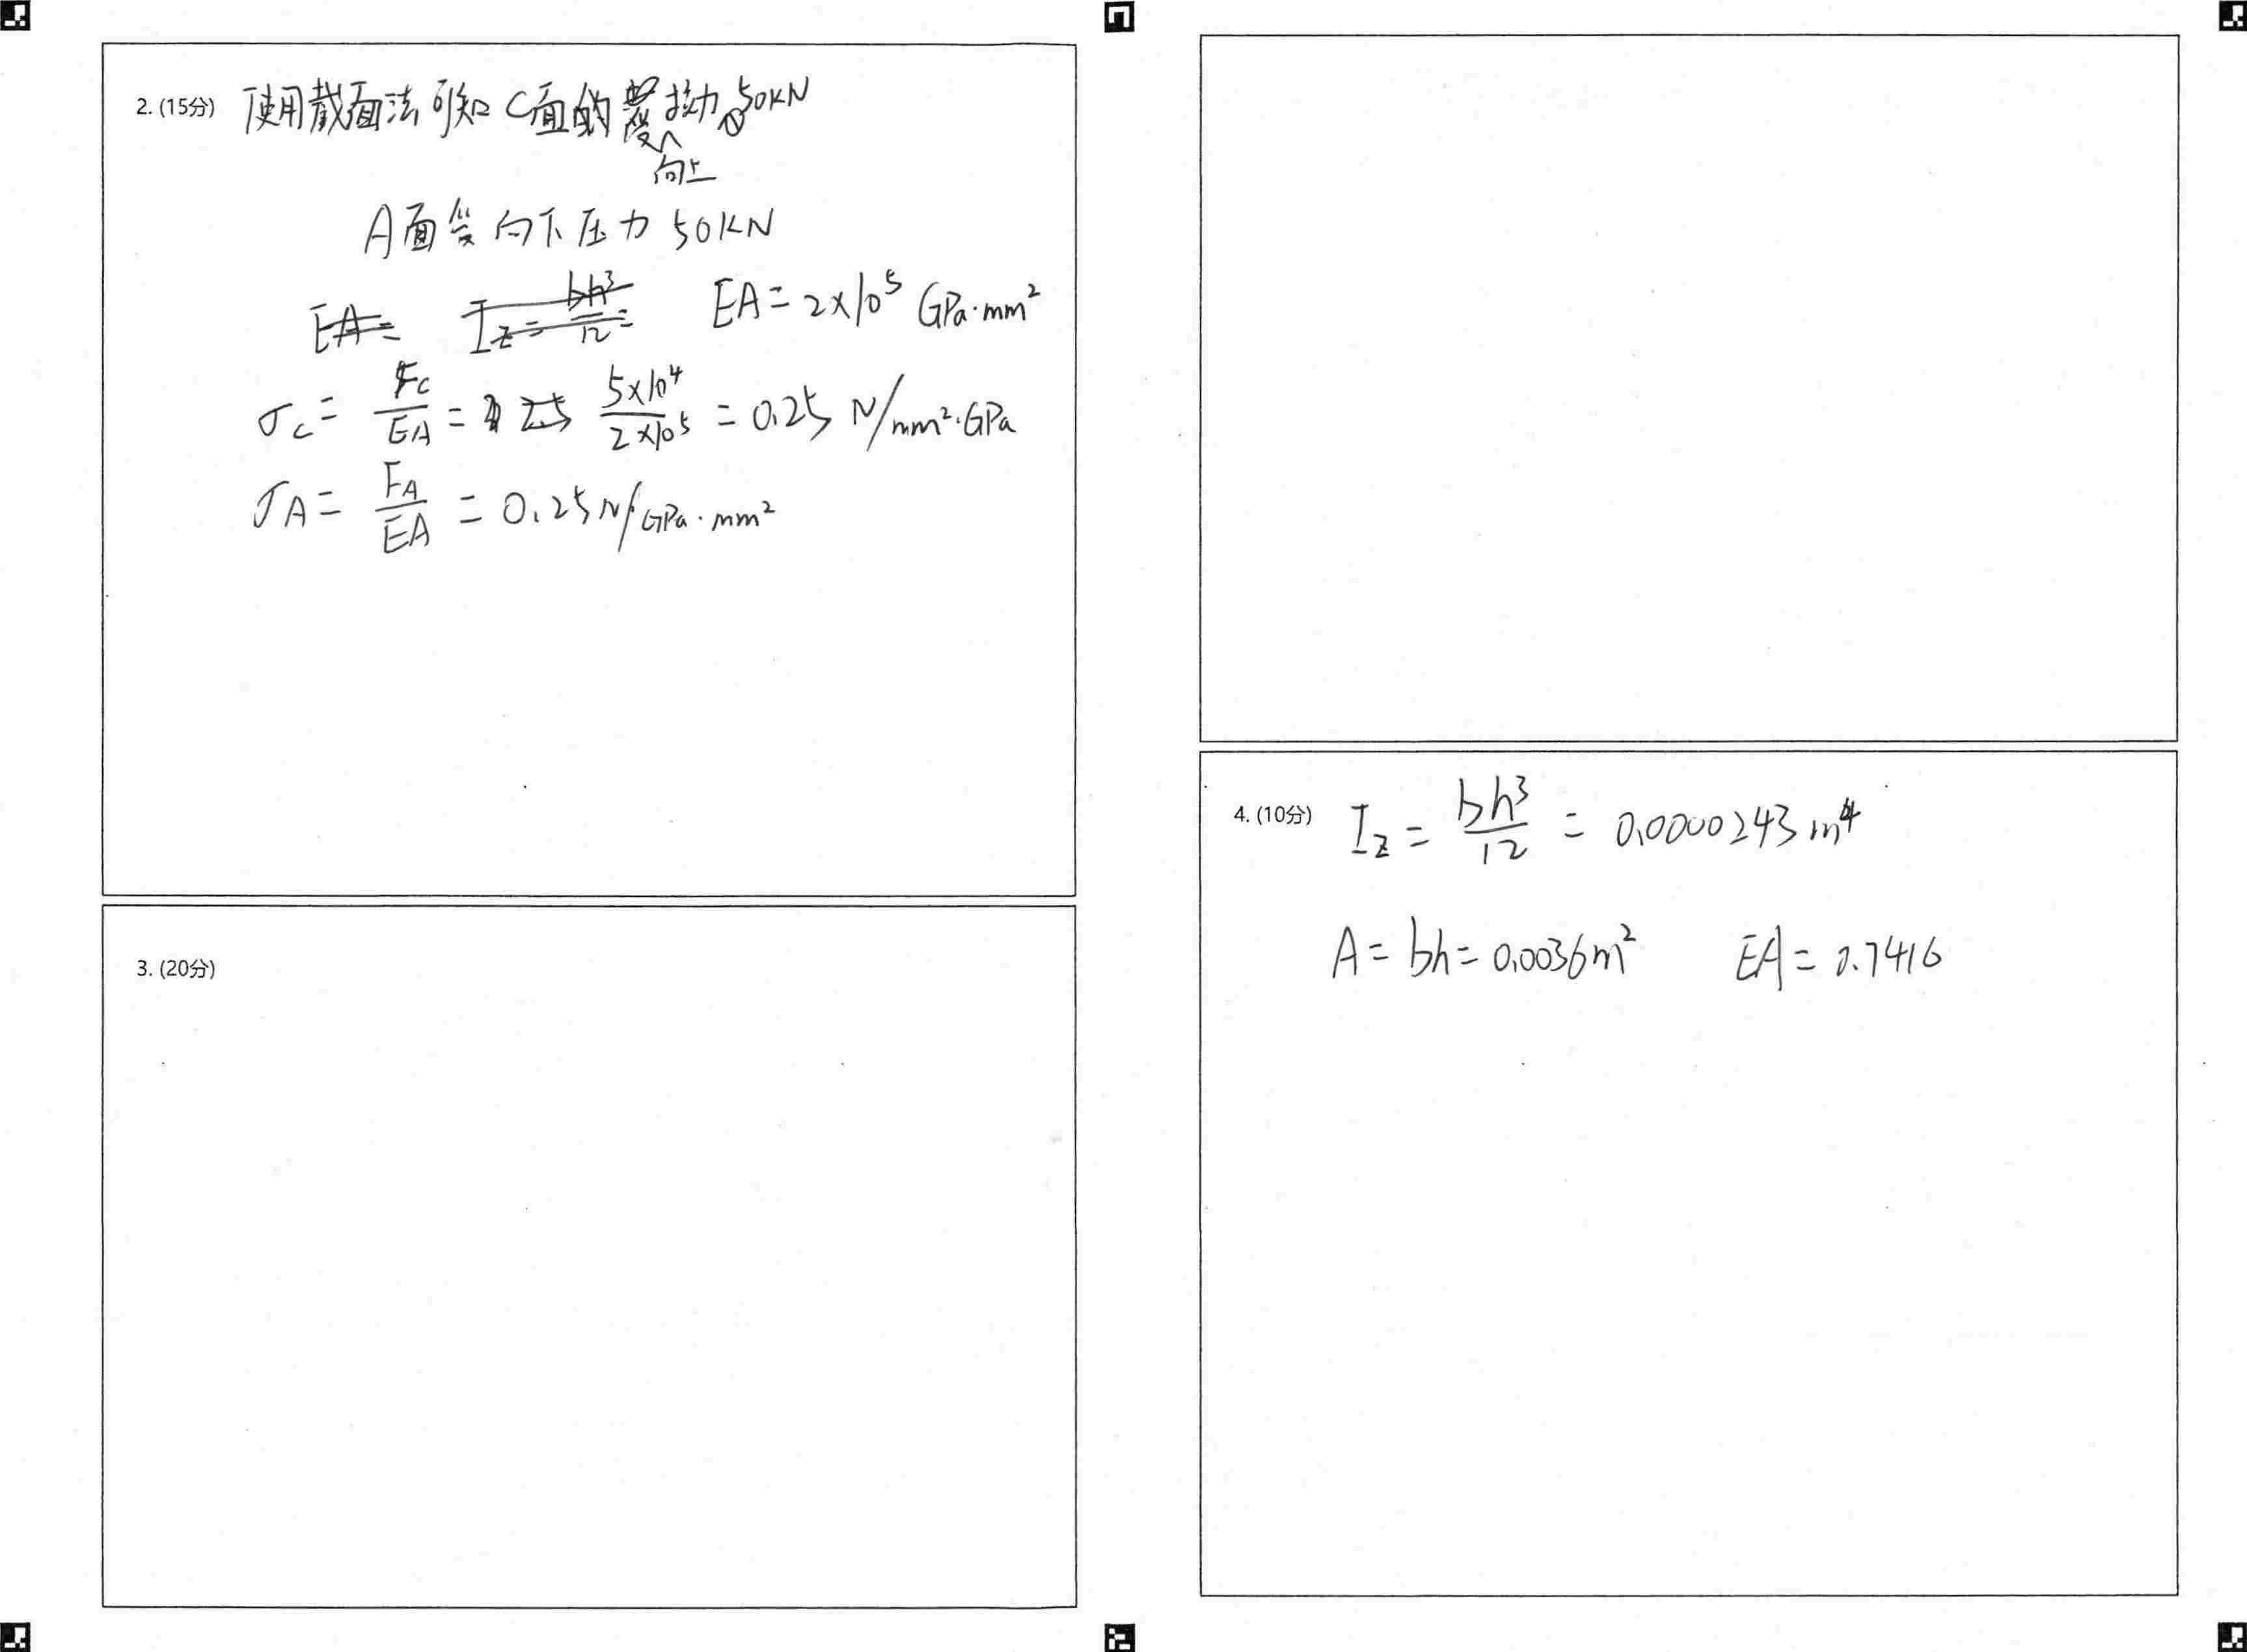 2. (15分) 使用截面法可知 C面的受向上拉力 50KN
A面受向下压力 50KN
EA= Iz = bh³/12 = EA = 2×10⁵ GPa·mm²
σc = Fc/EA = 5×10⁴/2×10⁵ = 0.25 N/mm²·GPa
σA = FA/EA = 0.25 N/GPa·mm²
3. (20分)
4. (10分) Iz = bh³/12 = 0.0000243 m⁴
A = bh = 0.0036m² EA = 0.7416